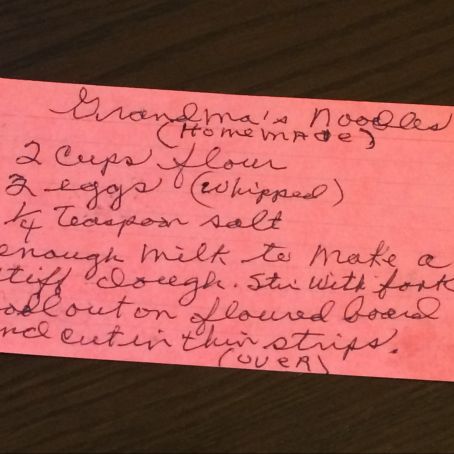 Grandma's Noodles
(Homemade)
2 cups flour
2 eggs (whipped)
1/4 Teaspoon salt
enough milk to make a
stiff dough. Stir with fork
roll out on floured board
and cut in thin strips.
(OVER)